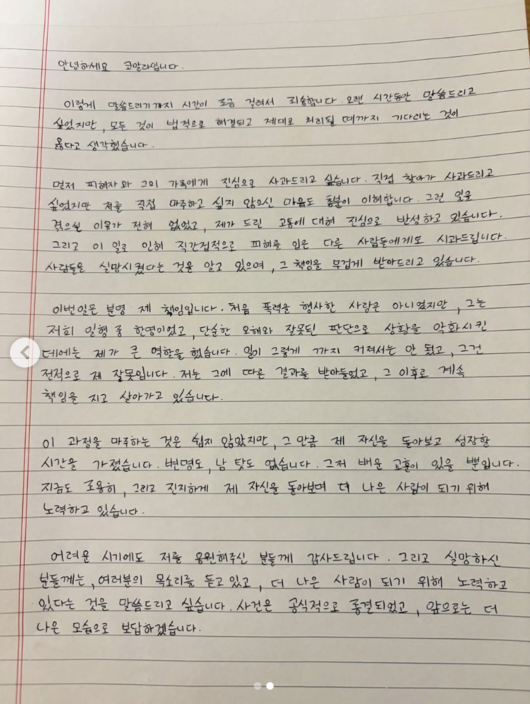 안녕하세요 코알라입니다.
이렇게 말씀드리기까지 시간이 조금 걸려서 죄송합니다. 오랜 시간동안 말씀드리고
싶었지만, 모든 것이 법적으로 해결되고 제대로 처리될 때까지 기다리는 것이
옳다고 생각했습니다.
먼저 피해자와 그의 가족에게 진심으로 사과드리고 싶습니다. 직접 찾아가 사과드리고
싶었지만 저를 직접 마주하고 싶지 않으신 마음도 충분히 이해합니다. 그런 일을
겪으실 이유가 전혀 없었고, 제가 드린 고통에 대해 진심으로 반성하고 있습니다.
그리고 이 일로 인해 직간접적으로 피해를 입은 다른 사람들에게도 사과드립니다.
사람들을 실망시켰다는 것을 알고 있으며, 그 책임을 무겁게 받아드리고 있습니다.
이번일은 분명 제 책임입니다. 처음 폭력을 행사한 사람은 아니였지만, 그는
저희 일행 중 한명이었고, 단순한 오해와 잘못된 판단으로 상황을 악화시킨
데에는 제가 큰 역할을 했습니다. 일이 그렇게 까지 커져서는 안 됐고, 그건
전적으로 제 잘못입니다. 저는 그에 따른 결과를 받아들였고, 그 이후로 계속
책임을 지고 살아가고 있습니다.
이 과정을 마주하는 것은 쉽지 않았지만, 그 만큼 제 자신을 돌아보고 성장할
시간을 가졌습니다. 변명도, 남 탓도 없습니다. 그저 배운 교훈이 있을 뿐입니다.
지금도 조용히, 그리고 진지하게 제 자신을 돌아보며 더 나은 사람이 되기 위해
노력하고 있습니다.
어려울 시기에도 저를 응원해주신 분들께 감사드립니다. 그리고 실망하신
분들께는, 여러분의 목소리를 듣고 있고, 더 나은 사람이 되기 위해 노력하고
있다는 것을 말씀드리고 싶습니다. 사건은 공식적으로 종결되었고, 앞으로는 더
나은 모습으로 보답하겠습니다.